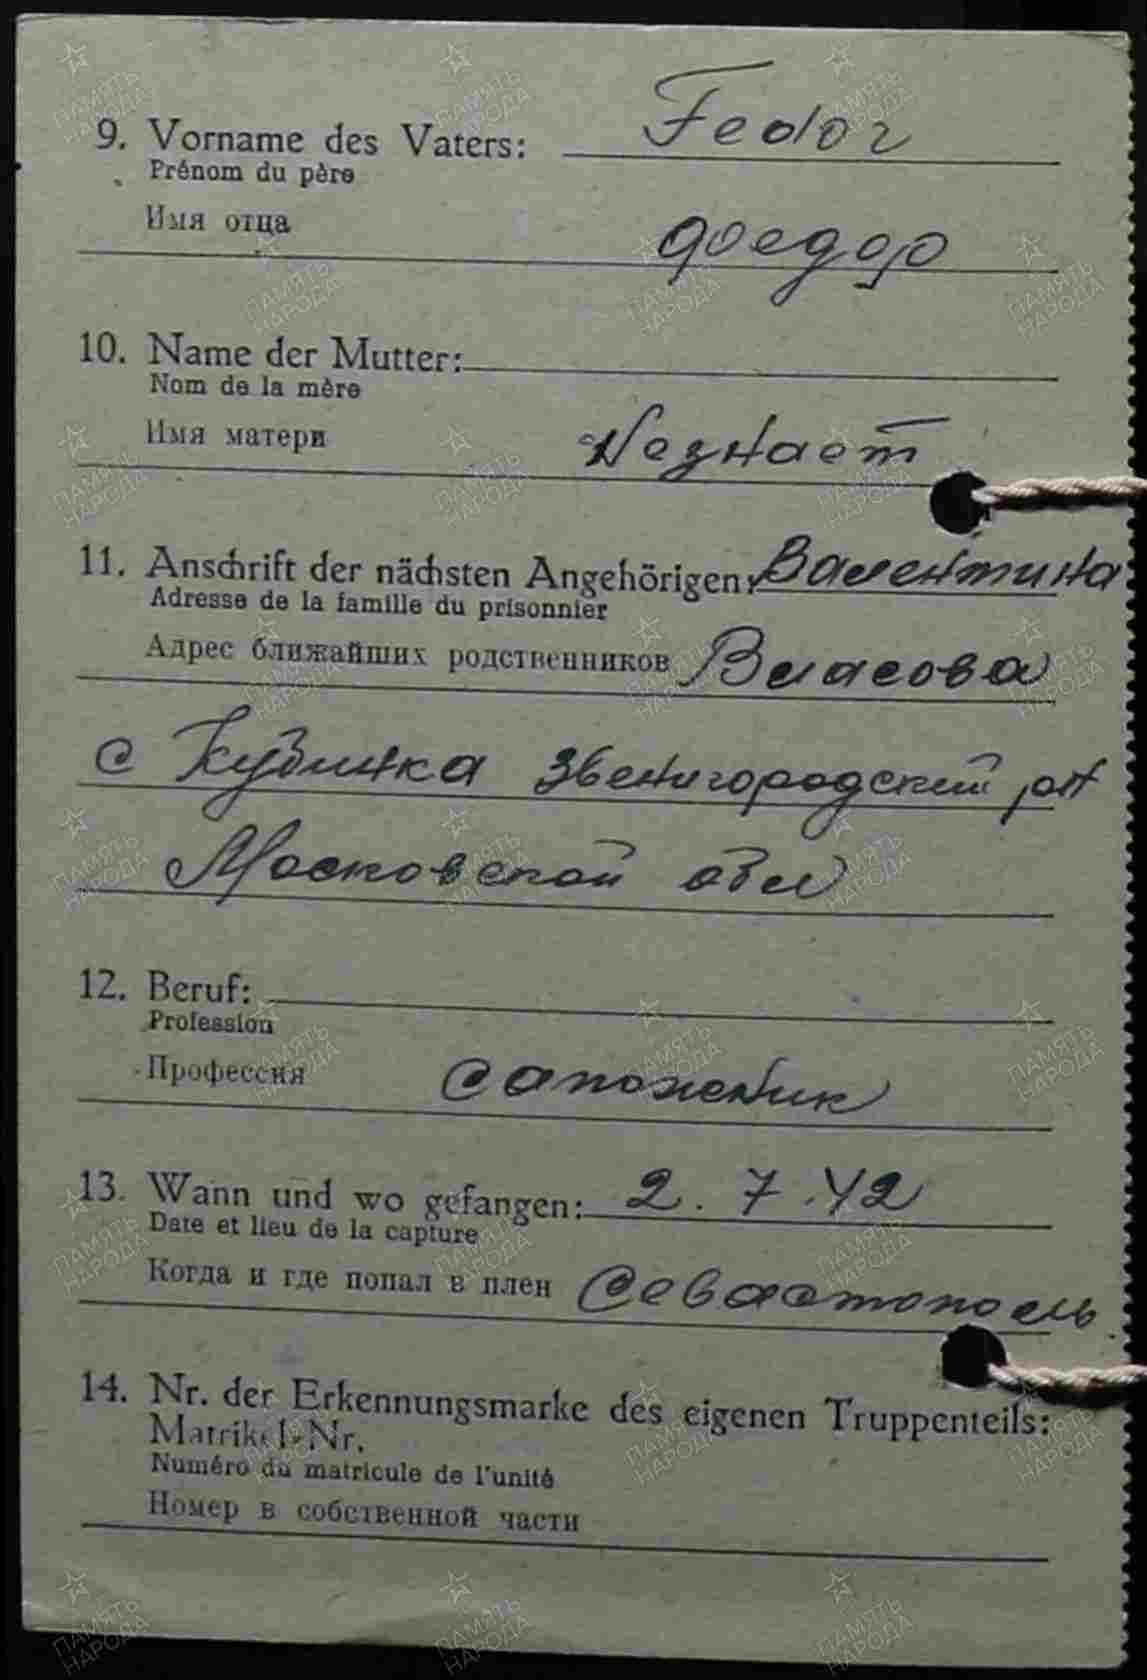 9. Vorname des Vaters: Fedor
Prénom du père
Имя отца Фоедор
10. Name der Mutter:
Nom de la mère
Имя матери Незнает
11. Anschrift der nächsten Angehörigen: Валентина
Adresse de la famille du prisonnier
Адрес ближайших родственников Власова
с Кубинка Звенигородский рн
Московской обл
12. Beruf:
Profession
Профессия сапожник
13. Wann und wo gefangen: 2.7.42
Date et lieu de la capture
Когда и где попал в плен Севастополь.
14. Nr. der Erkennungsmarke des eigenen Truppenteils:
Matrikel-Nr.
Numéro du matricule de l'unité
Номер в собственной части
ПАМЯТЬ НАРОДА